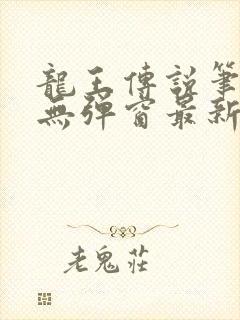 龍王傳說筆
無彈窗最新
老鬼莊